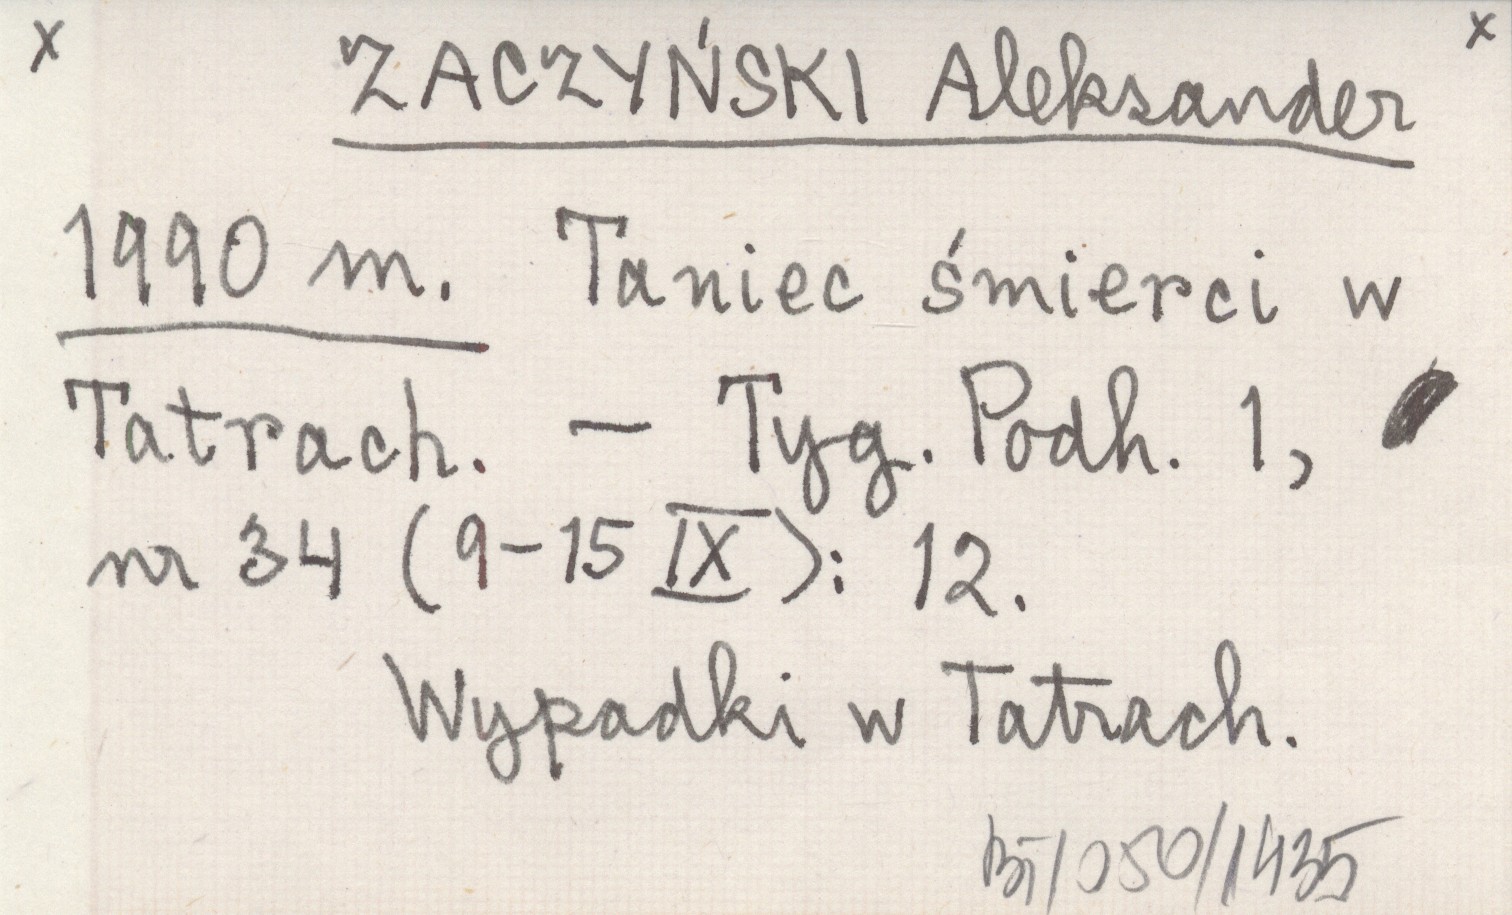 x ZACZYŃSKI Aleksander x
1990 m. Taniec śmierci w
Tatrach. – Tyg. Podh. 1,
nr 34 (9–15 IX): 12.
Wypadki w Tatrach.
BT/050/1435